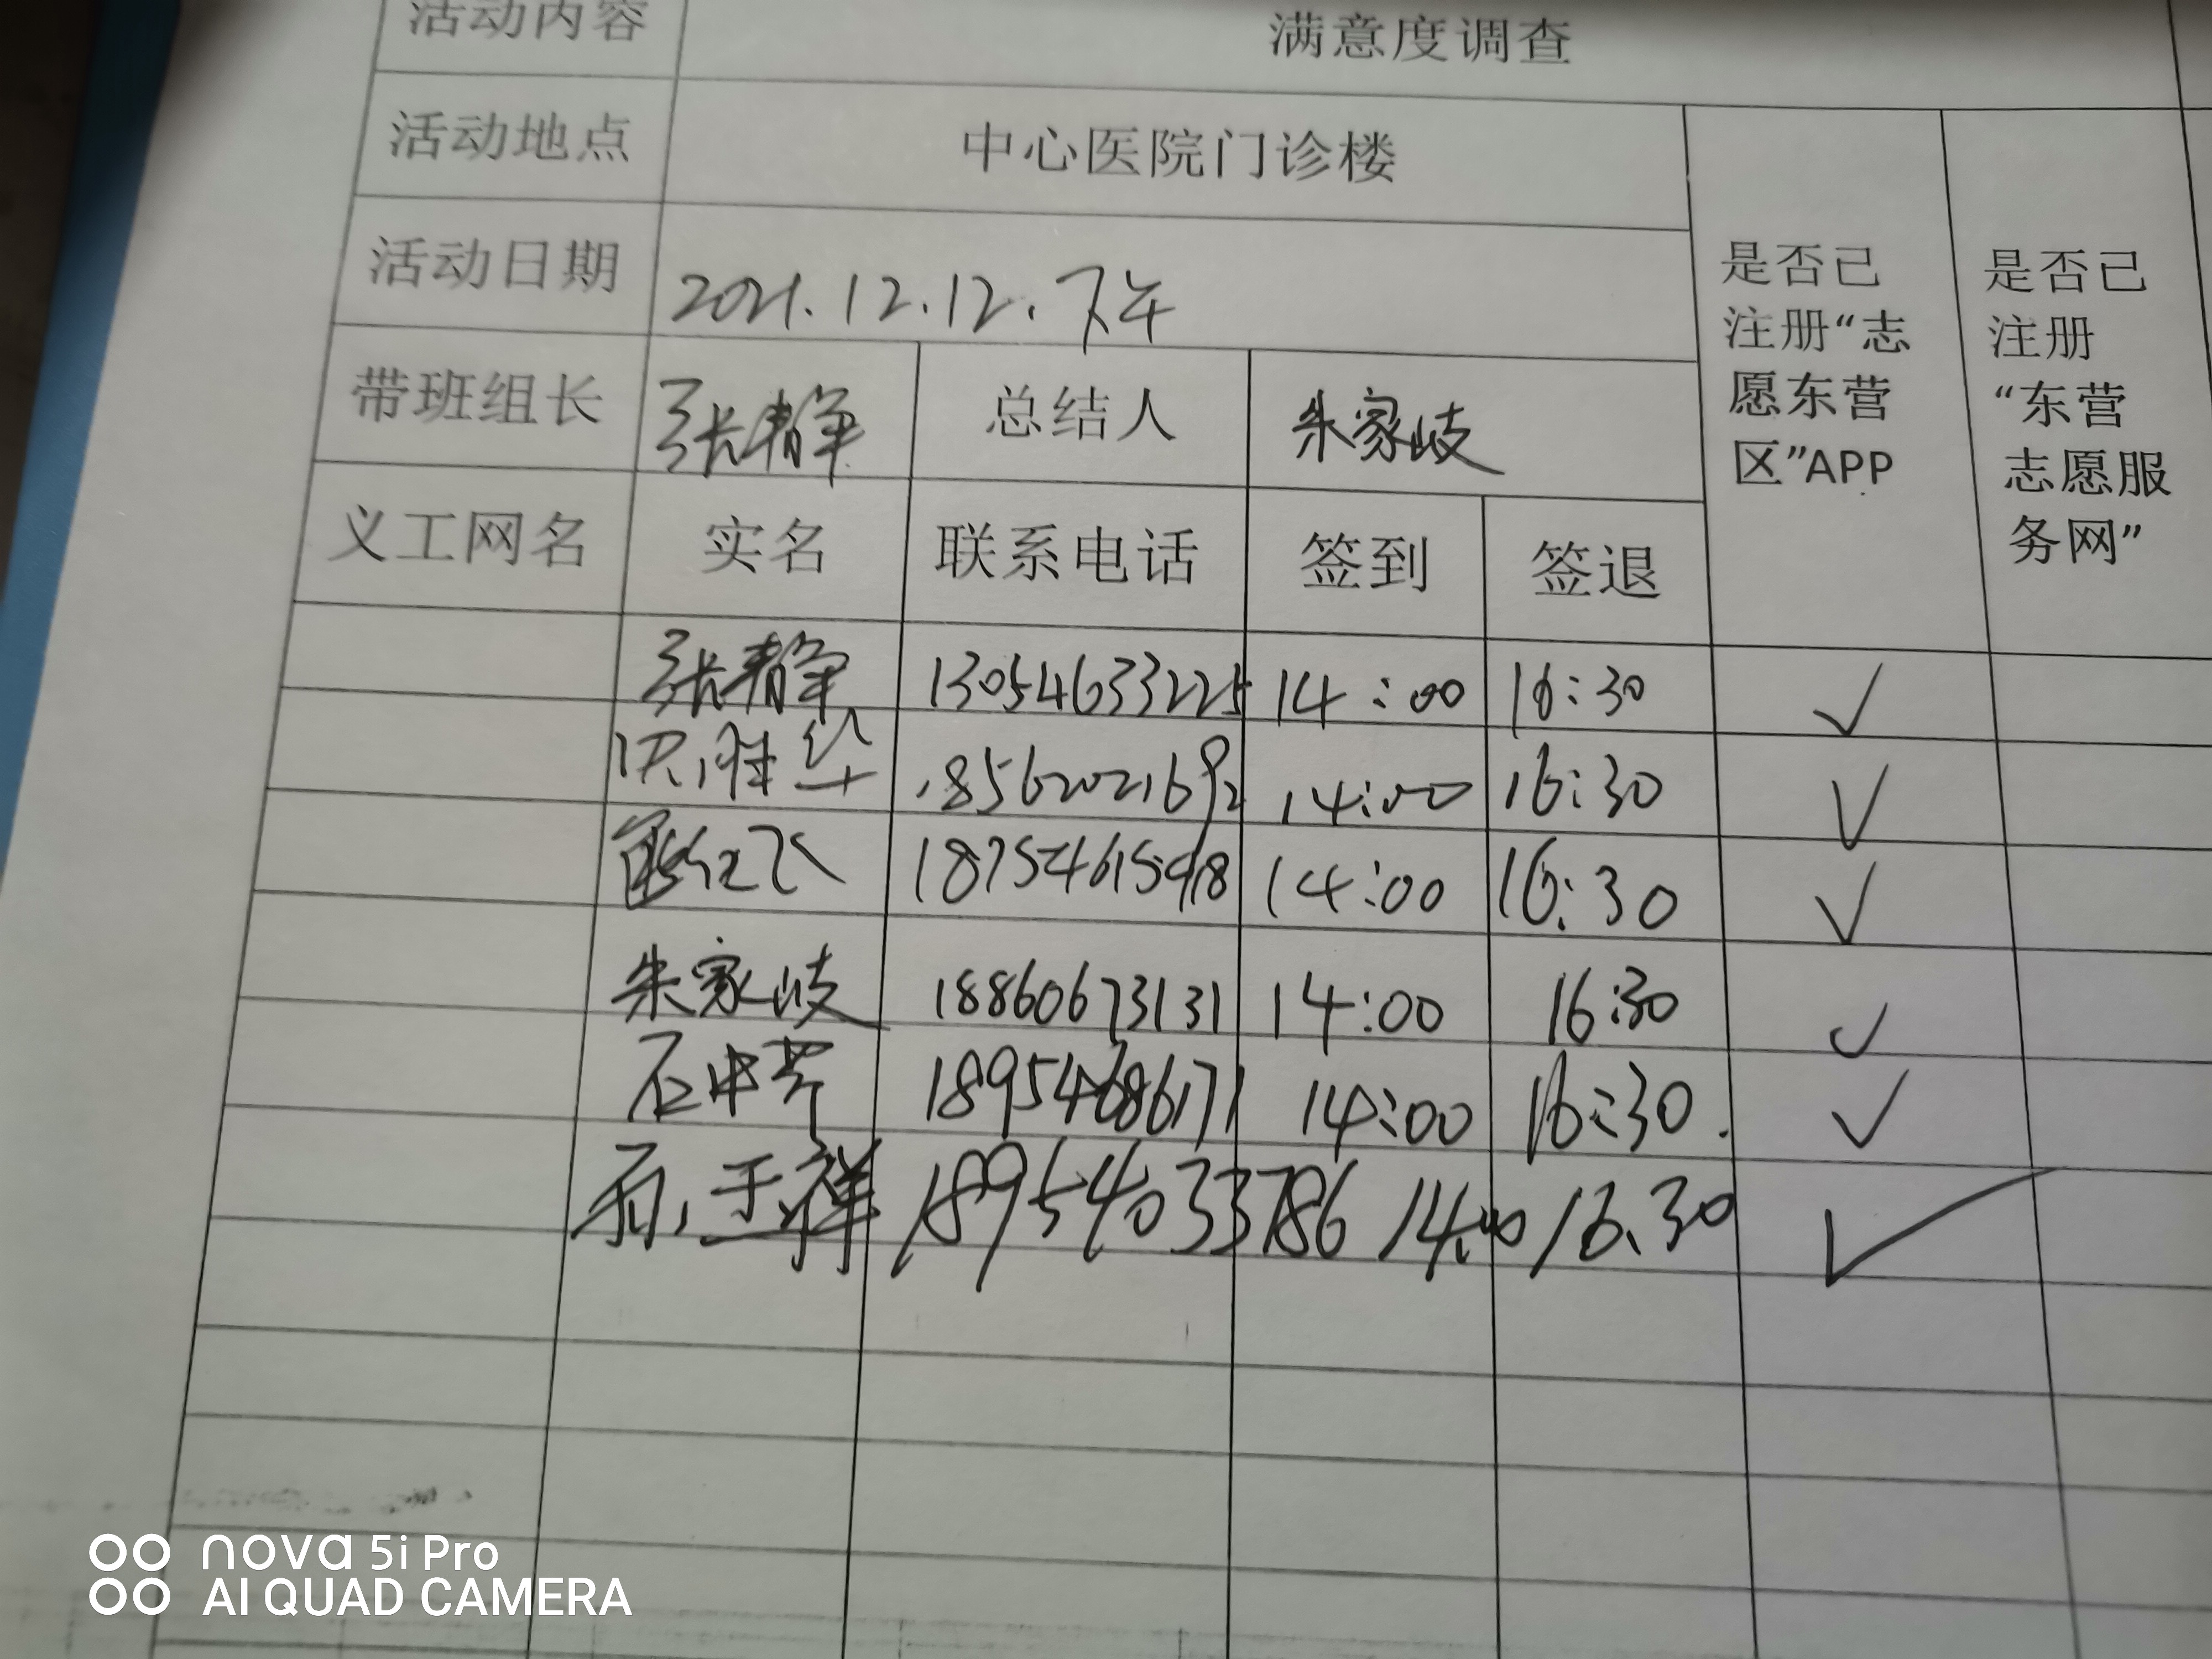 活动内容 满意度调查
活动地点 中心医院门诊楼
活动日期 2021.12.12.下午
带班组长 张静 总结人 朱家岐
是否已
注册“志
愿东营
区”APP
是否已
注册
“东营
志愿服
务网”
义工网名 实名 联系电话 签到 签退
张静 13054633225 14:00 16:30 ✓
18562021692 14:00 16:30 ✓
18754615918 14:00 16:30 ✓
朱家岐 18860673131 14:00 16:30 ✓
石中芹 18954686171 14:00 16:30. ✓
18954033786 14:00 16.30 ✓
nova 5i Pro
AI QUAD CAMERA